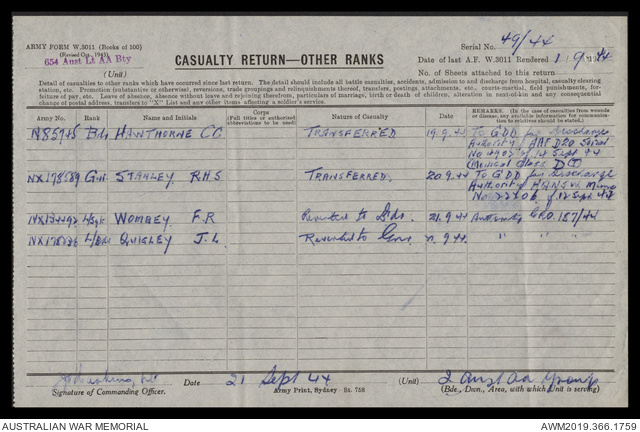 ARMY FORM W.3011 (Books of 100)
(Revised Oct., 1943)
654 Aust Lt AA Bty
(Unit)
CASUALTY RETURN—OTHER RANKS
Serial No. 49/44
Date of last A.F. W.3011 Rendered 1.9.1944
No. of Sheets attached to this return
Detail of casualties to other ranks which have occurred since last return. The detail should include all battle casualties, accidents, admission to and discharge from hospital, casualty clearing
station, etc. Promotion (substantive or otherwise), reversions, trade groupings and relinquishments thereof, transfers, postings, attachments, etc., courts-martial, field punishments, for-
feiture of pay, etc. Leave of absence, absence without leave and rejoining therefrom, particulars of marriage, birth or death of children, alteration in next-of-kin and any consequential
change of postal address, transfers to "X" List and any other items affecting a soldier's service.
Army No. Rank Name and Initials Corps (Full titles or authorised abbreviations to be used) Nature of Casualty Date REMARKS. (In the case of casualties from wounds or disease, any available information suitable for communication to relatives should be stated.)
Bdr HAWTHORNE C C TRANSFERRED 19.9.44 To GDD for discharge
Authority
(Medical Class D)
NX178589 Gnr STANLEY R H S TRANSFERRED. 20.9.44 To GDD for discharge
Authority
WOMBEY F.R Reverted to Bdr. 21.9.44 Authority GRO.187/44
QUIGLEY J.L. Reverted to Gnr 9.44 " "
Signature of Commanding Officer.
Date 21 Sept 44
Army Print, Sydney St. 758
(Unit) 2 Aust AA Group
(Bde., Dvn., Area, with which Unit is serving)
AUSTRALIAN WAR MEMORIAL
AWM2019.366.1759